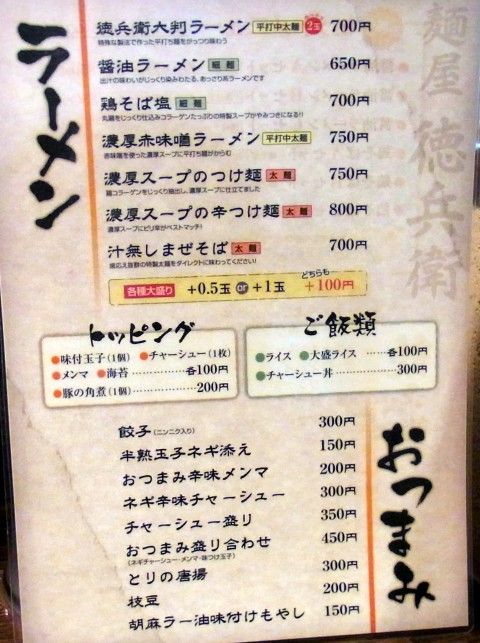 ラーメン
徳兵衛大判ラーメン 平打中太麺 2玉 700円
特殊な製法で作った平打ち麺をがっつり味わう
醤油ラーメン 細麺 650円
出汁の味わいがじっくり染みわたる、あっさり系ラーメンです
鶏そば塩 細麺 700円
丸鶏をじっくり仕込みコラーゲンたっぷりの特製スープがやみつきになる!!
濃厚赤味噌ラーメン 平打中太麺 750円
赤味噌を使った濃厚スープに平打ち麺がからむ
濃厚スープのつけ麺 太麺 750円
鶏コラーゲンをじっくり抽出し、濃厚スープに仕立てました
濃厚スープの辛つけ麺 太麺 800円
濃厚スープにピリ辛がベストマッチ!
汁無しまぜそば 太麺 700円
歯応え抜群の特製太麺をダイレクトに味わってください!
どちらも
各種大盛り +0.5玉 or +1玉 +100円
麺屋 徳兵衛
トッピング
味付玉子(1個) チャーシュー(1枚)
メンマ 海苔 各100円
豚の角煮(1個) 200円
ご飯類
ライス 大盛ライス 各100円
チャーシュー丼 300円
おつまみ
餃子(ニンニク入り) 300円
半熟玉子ネギ添え 150円
おつまみ辛味メンマ 200円
ネギ辛味チャーシュー 300円
チャーシュー盛り 350円
おつまみ盛り合わせ 450円
(ネギチャーシュー・メンマ・味つけ玉子)
とりの唐揚 300円
枝豆 200円
胡麻ラー油味付けもやし 150円